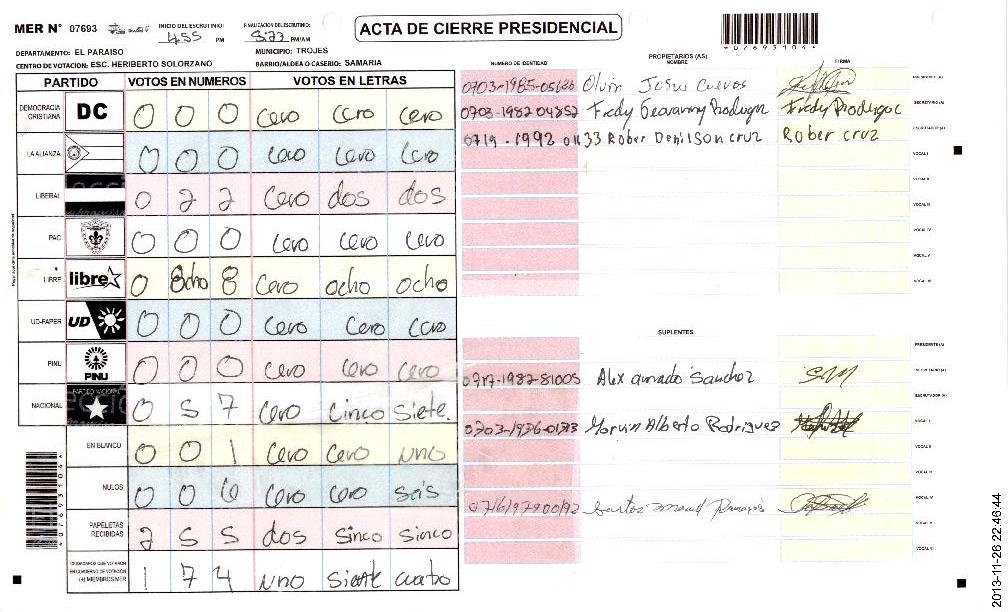 MER N° 07693 INICIO DEL ESCRUTINIO: 4:55 PM FINALIZACIÓN DEL ESCRUTINIO: PM/AM
ACTA DE CIERRE PRESIDENCIAL
*07693104*
DEPARTAMENTO: EL PARAISO MUNICIPIO: TROJES
CENTRO DE VOTACION: ESC. HERIBERTO SOLORZANO BARRIO/ALDEA O CASERIO: SAMARIA
PARTIDO VOTOS EN NUMEROS VOTOS EN LETRAS
DEMOCRACIA CRISTIANA DC 0 0 0 cero cero cero
LA ALIANZA 0 0 0 cero cero cero
LIBERAL 0 2 2 cero dos dos
PAC 0 0 0 cero cero cero
LIBRE libre 0 8cho 8 cero ocho ocho
UD-FAPER UD 0 0 0 cero cero cero
PINU PINU 0 0 0 cero cero cero
NACIONAL PARTIDO NACIONAL 0 5 7 cero cinco siete.
EN BLANCO 0 0 1 cero cero uno
NULOS 0 0 6 cero cero seis
PAPELETAS RECIBIDAS 2 5 5 dos sinco sinco
CIUDADANOS QUE VOTARON EN CUADERNO DE VOTACIÓN (+) MIEMBROS MER 1 7 4 uno siente cuatro
PROPIETARIOS (AS)
NUMERO DE IDENTIDAD NOMBRE FIRMA
0703-1985-05626 Olvin Josue Cuevas PRESIDENTE (A)
0703-1982 04852 Fredy Geovanny SECRETARIO (A)
0719-1992 01133 Rober Denilson cruz Rober cruz ESCRUTADOR (A)
VOCAL I
VOCAL II
VOCAL III
VOCAL IV
VOCAL V
VOCAL VI
SUPLENTES
PRESIDENTE (A)
0717-1982-81005 Alex amado Sanchez SECRETARIO (A)
ESCRUTADOR (A)
0703-1936-0173 Marvin Alberto Rodriguez VOCAL I
VOCAL II
VOCAL III
Santos VOCAL IV
VOCAL V
VOCAL VI
*07693104*
2013-11-26 22:46:44